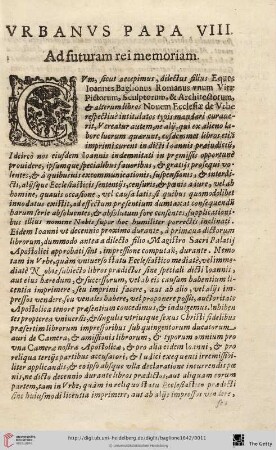 VRBANVS PAPA VIII.
Ad futuram rei memoriam.
CVm, sicut accepimus, dilectus filius Eques
Ioannes Baglionus Romanus vnum Vitæ
Pictorum, Sculptorum, & Architectorum,
& alterum libros Nouem Ecclesiæ de Vrbe
respectiuè intitulatos typis mandari curaue-
rit, Vereatur autem, ne alij qui ex alieno la-
bore lucrum quærunt, eosdem met libros etiã
imprimi curent in dicti Ioannis præiudiciũ,
Idcircò nos eiusdem Ioannis indemnitati in præmissis opportunè
prouidere, ipsumque specialibus fauoribus, & gratijs prosequi vo-
lentes, & à quibusuis excommunicationis, suspensionis, & interdi-
cti, alijsque Ecclesiasticis sententijs, censuris, & pœnis à iure, vel ab
homine, quauis occasione, vel causa latis, si quibus quomodolibet
innodatus existit, ad effectum præsentium dumtaxat consequendũ
harum serie absoluentes, & absolutum fore censentes, supplicationi-
bus illius nomine Nobis super hoc humiliter porrectis inclinati.
Eidem Ioanni vt decennio proximo durante, à primæua dictorum
librorum, dummodo antea à dilecto filio Magistro Sacri Palatij
Apostolici approbati sint, impressione computan. durante. Nemo
tam in Vrbe, quàm vniuerso statu Ecclesiastico mediatè, vel imme-
diatè Nobis subiecto libros prædictos sine speciali dicti Ioannis,
aut eius hæredum, & successorum, aut ab eis causam habentium li-
centia imprimere, seu imprimi facere, aut ab alio, vel alijs im-
pressos vendere, seu venales habere, vel proponere possit, auctoritate
Apostolica tenore præsentium concedimus, & indulgemus. Inhiben-
tes propterea vniuersis, & singulis vtriusque sexus Christi fidelibus
præsertim librorum impressoribus sub quingentorum ducatorum
auri de Camera, & amissionis librorum, & typorum omnium pro
vna Cameræ nostræ Apostolicæ, & pro alia eidem Ioanni, & pro
reliqua tertijs partibus accusatori, & Iudici exequenti irremissibi-
liter applicandis, & eo ipso absque vlla declaratione incurren. pœ-
nis, ne dicto decennio durante libros prædictos, aut aliquam eorum
partem, tam in Vrbe, quàm in reliquo statu Ecclesiastico prædicti
sine huiusmodi licentia imprimere, aut ab alijs impressos vendere,
http://digi.ub.uni-heidelberg.de/diglit/baglione1642/0011
© Universitätsbibliothek Heidelberg
The Getty